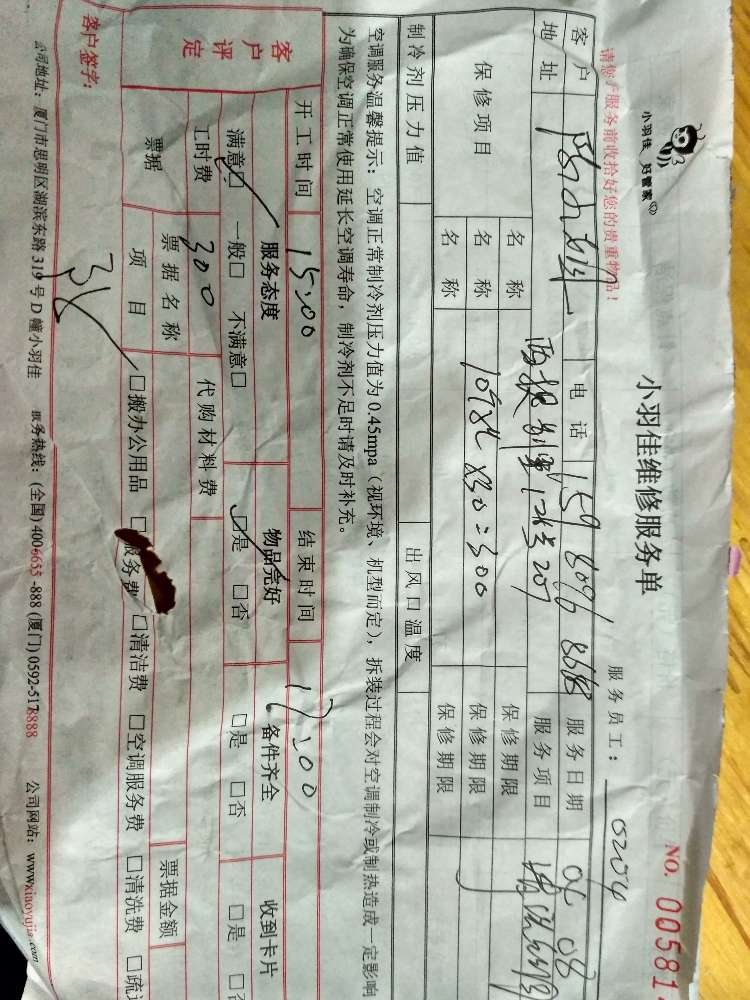 小羽佳 好管家
小羽佳维修服务单
NO. 00581
请您于服务前收拾好您的贵重物品!
服务员工: 0204
客户 电话 159 8096 8568 服务日期 06 08
地址 服务项目
保修项目 名称 保修期限
名称 保修期限
名称 保修期限
制冷剂压力值 出风口温度
空调服务温馨提示: 空调正常制冷剂压力值为 0.45mpa (视环境、机型而定), 拆装过程会对空调制冷或制热造成一定影响
为确保空调正常使用延长空调寿命, 制冷剂不足时请及时补充。
开工时间 15:00 结束时间 17:00
客户评定 服务态度 物品完好 备件齐全 收到卡片
满意□ 一般□ 不满意□ □是 □否 □是 □否 □是
工时费 300 代购材料费
票据 票据名称 票据金额
项目 □搬办公用品 □服务费 □清洁费 □空调服务费 □清洗费 □疏
客户签字:
公司地址: 厦门市思明区湖滨东路 319 号 D 幢小羽佳 服务热线: (全国) 4006655-888 (厦门) 0592-5178888 公司网站: www.xiaoyujia.com